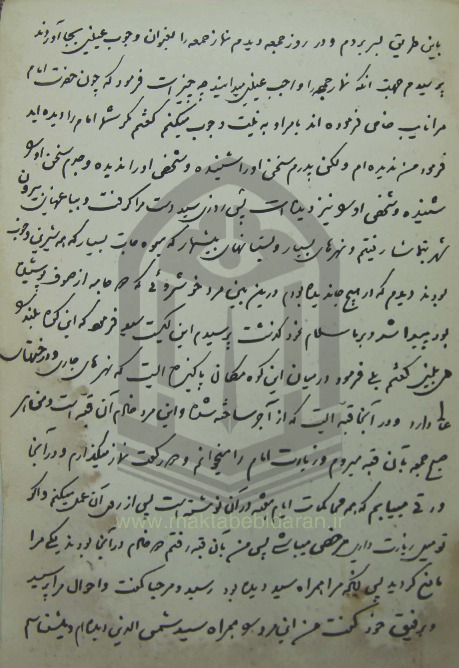 باین طریق بسر بردم و در روز جمعه دیدم نماز جمعه را بعنوان وجوب عینی بجا آوردند
پرسیدم جهت آنکه نماز جمعه را واجب عینی میدانید چه چیز است فرمود که چون حضرت امام
مرا نایب خاص فرموده اند بامر او به نیت وجوب میکنم گفتم که شما امام را دیده اید
فرمود من ندیده ام ولکن پدرم سخن او را شنیده و شخص او را ندیده و جدم سخن او را
شنیده و شخص او را نیز دیده است پس از آن سید دست مرا گرفت و بباغهای بیرون
شهر بتماشا رفتیم و نهرهای بسیار و بستانهای بیشمار که میوه جات بسیار که همه شیرین و خوب
بودند دیدم که در هیچ جا ندیده بودم درین بین مرد خوشروئی که دو جامه از صوف پوشیده
بود پیدا شد و بر ما سلام کرد گذشت پرسیدم این کیست سید فرمود که این کوه بلند را
می بینی گفتم بلی فرمود در میان این کوه مکان پاکیزه ایست که نهرهای جاری و درختان
دارد و در آنجا قبه ایست که از آجر ساخته شده و این مرد خادم آن قبه است و من هر
صبح جمعه بآن قبه میروم و زیارت امام را میخوانم و دو رکعت نماز میگذارم و در آنجا
ورقی مییابم که همه محاکمات ایام هفته در آن نوشته است پس از روی آن عمل میکنم و اگر
تو میل زیارت داری مرخصی میباشی پس من بآن قبه رفتم دو خادم در آنجا بودند یکی مرا
مانع گردید پس آنکه مرا همراه سید دیده بود رسید و مرحبا گفت و احوال مرا پرسید
و برفیق خود گفت من این مرد را همراه سید شمس الدین دیده ام و میشناسم
www.maktabebidaran.ir